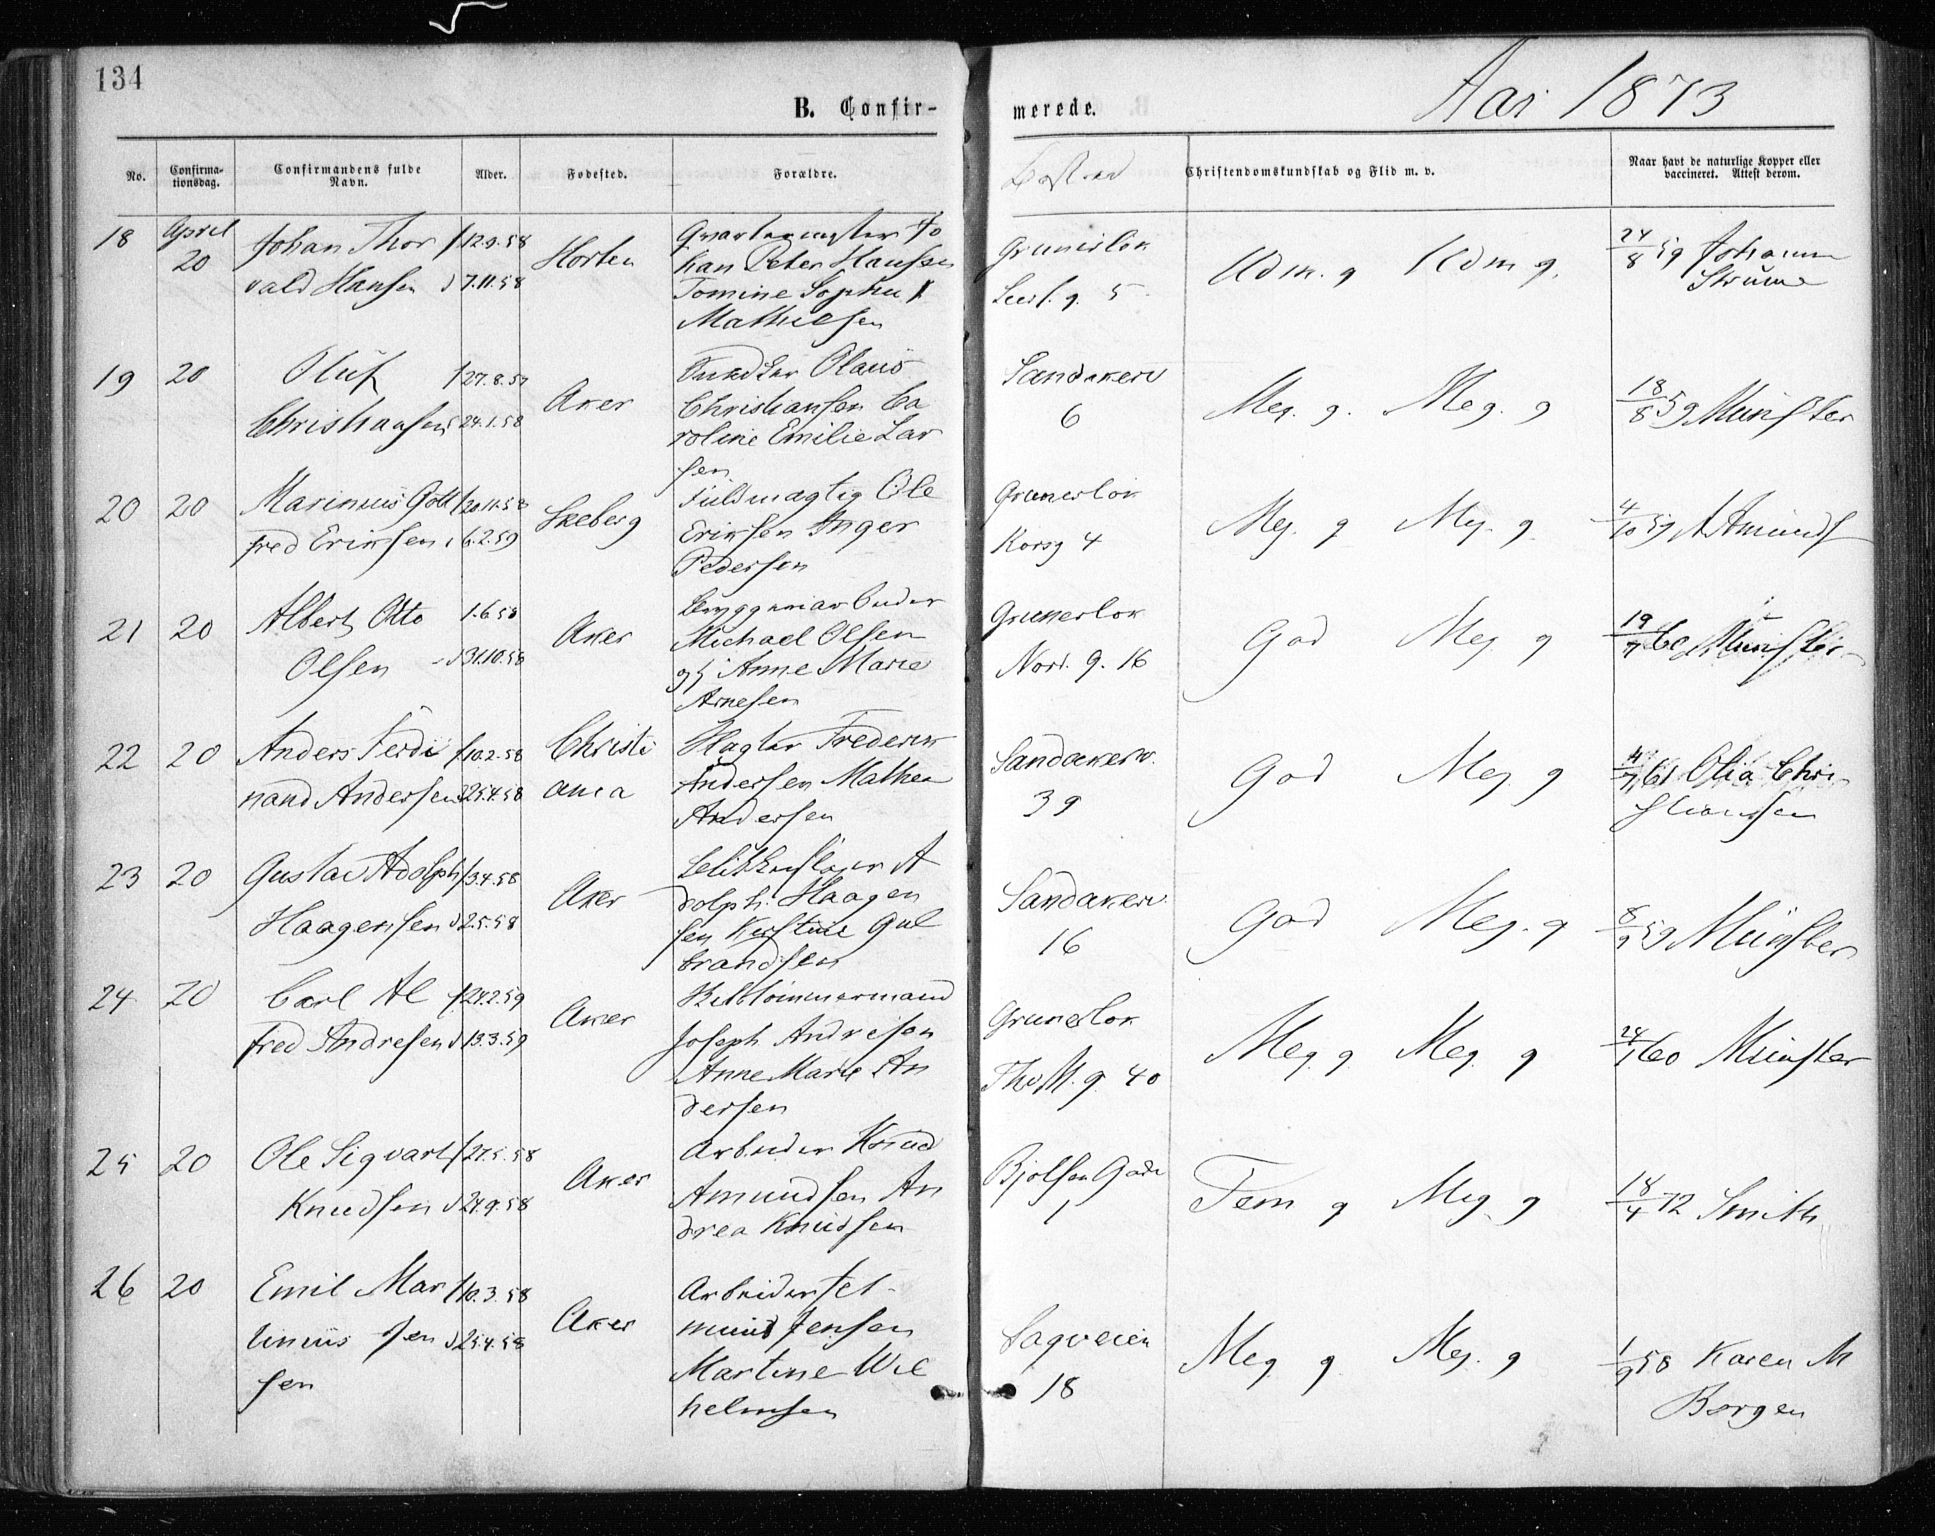 134
B. Confir-
merede.
Aar 1873
No.
Confirma-
tionsdag.
Confirmandens fulde
Navn.
Alder.
Fødested.
Forældre.
Bosted
Christendomskundskab og Flid m. v.
Naar havt de naturlige Kopper eller
vaccineret. Attest derom.
18 April 20
Johan Thor
vald Hansen
f 12.9.58
d 7.11.58
Horten
Qvartermester Jo
han Peter Hansen
Tomine Sophie
Mathiesen
Grunerløk
5
Udm. g Udm g.
24/8 59 Johanne
Strüme
19 20
Oluf
Christiansen
f 27.8.57
d 24.1.58
Aker
Snedker Olaus
Christiansen Ca
roline Emilie Lar
sen
Sandakerv
6
Meg. g. Meg. g
18/8 59 Münster
20 20
Marinius Gott
fred Eriksen
f 20.11.58
d 6.2.59
Skeberg
Fuldmægtig Ole
Eriksen Inger
Pedersen
Grunerløk
Korsg 4
Meg. g Meg. g
4/10 59 A Amunds
21 20
Albert Otto
Olsen
1.6.58
d 31.10.58
Aker
Bryggeriarbeider
Michael Olsen
og Anne Marie
Arnesen
Grunerløk
Nord. g. 16
God Meg. g
19/7 60 Münster
22 20
Anders Ferdi
nand Andersen
f 10.2.58
d 25.4.58
Christi
ania
Slagter Frederik
Andersen Mathea
Andersen
Sandakerv.
39
God Meg. g
4/7 61 Olia Chri
stiansen
23 20
Gustav Adolph
Haagensen
f 3.4.58
d 2.5.58
Aker
A
dolph Haagen
sen Kirstine Gul
brandsen
Sandakerv
16
God Meg. g
8/9 59 Münster
24 20
Carl Al
fred Andresen
f 24.2.59
d 13.3.59
Aker
Skibtømmermand
Joseph Andresen
Anne Marie An
dersen
Grunerløk
Th M. g 40
Meg. g Meg. g
24/1 60 Münster
25 20
Ole Sigvart
Knudsen
f 27.5.58
d 24.9.58
Aker
Arbeider Knud
Amundsen An
drea Knudsen
Bjølsen Gade
1
Tem g Meg. g
18/4 72 Smith
26 20
Emil Mar
tinius Jen
sen
f 10.3.58
d 25.4.58
Aker
Arbeider Jel
mund Jensen
Martine Wil
helmsen
Sagveien
18
Meg g Meg. g
1/9 58 Karen M
Borgen